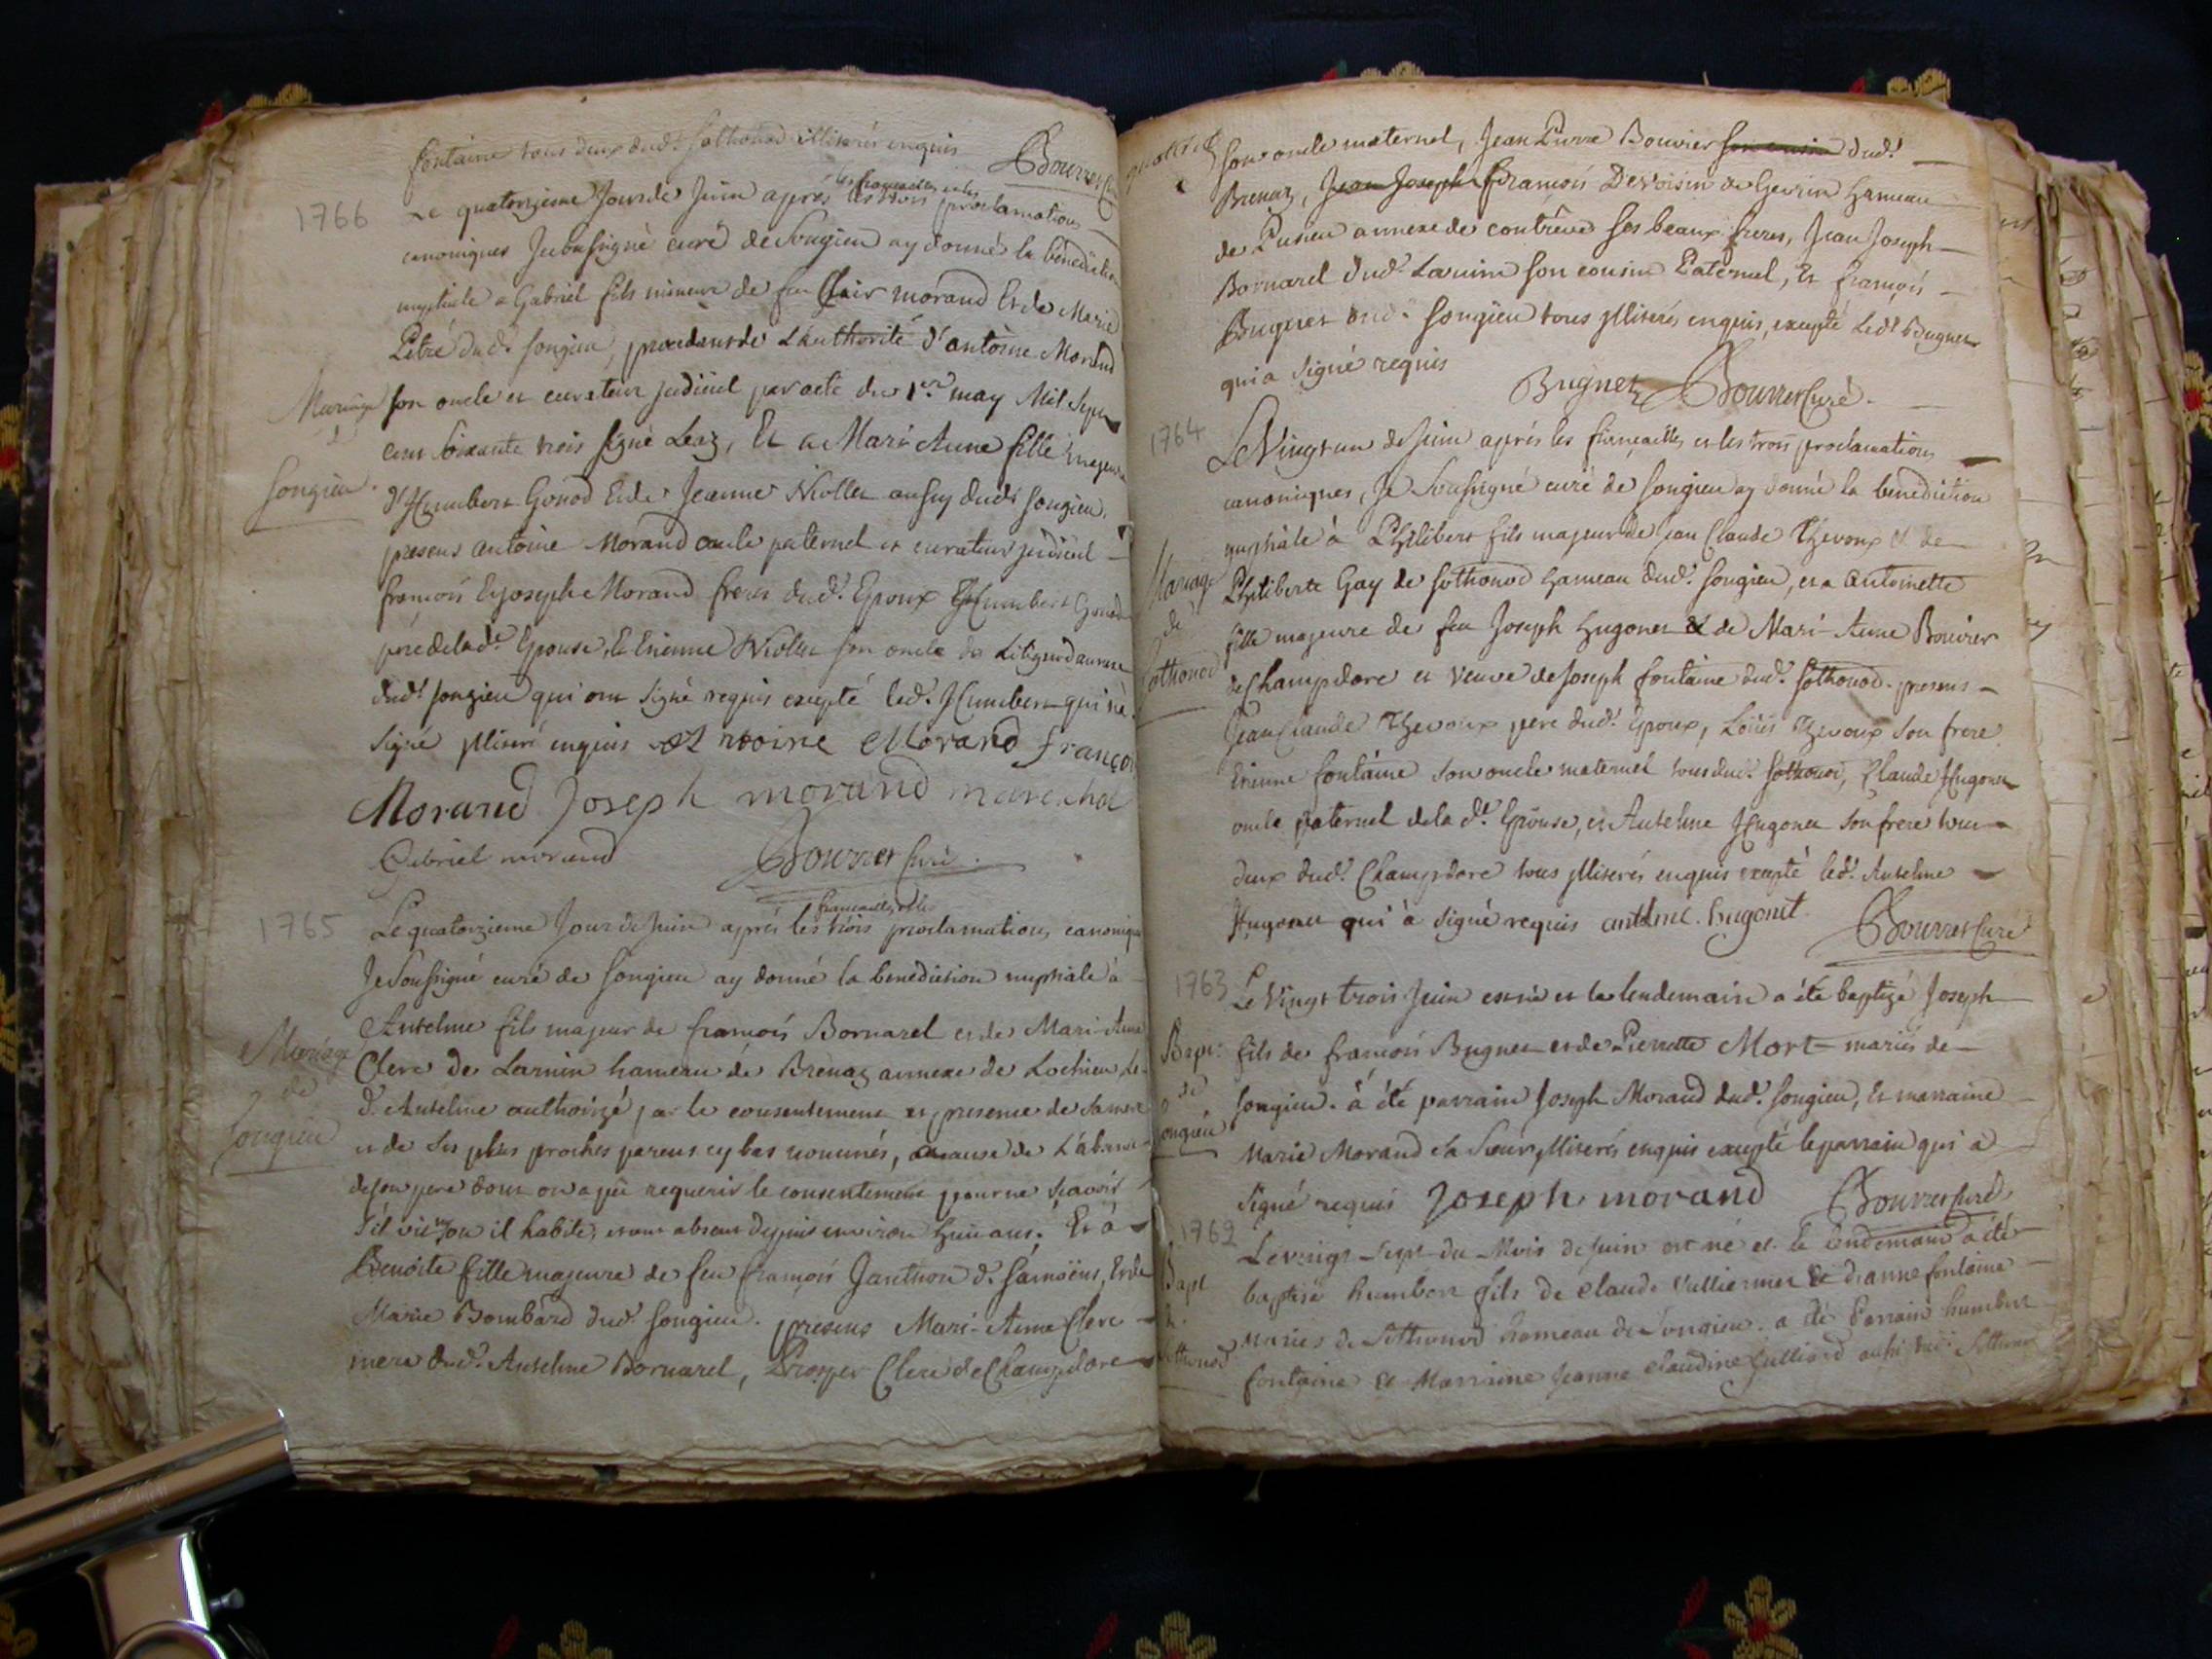 fontaine tous deux dud.t Sothonod illiterés enquis Bourret
1766
Le quatorzieme Jour de Juin après les françailles et les trois proclamations
canoniques Je soussigné curé de Songieu ay donné la benediction
nuptiale a Gabriel fils mineur de feu Clair morand Et de Marie
Petré dud.t Songieu, procedant de L'authorité d'antoine Morand
Mariage
son oncle et curateur judiciel par acte du 1.er may Mil Sept
cent soixante trois signé Leaz, Et a Mari-Anne fille majeure
Songieu.
d'Humbert Gonod Et de Jeanne Niollet aussy dudt Songieu.
presens antoine Morand oncle paternel et curateur judiciel
françois Et Joseph Morand freres dud.t Epoux Humbert Gonod
pere de lad.te Epouse, Et Etienne Niollet son oncle de
dud.t Songieu qui ont signé requis excepté led.t Humbert qui n'a
signé illiteré enquis Antoine Morand François
Morand Joseph morand marechal
Gabriel morand Bourret Curé.
1765
françailles et les
Le quatorzieme Jour de Juin après les trois proclamations canoniques
Je Soussigné curé de Songieu ay donné la benediction nuptiale à
Antelme fils majeur de françois Bornarel et de Mari-Anne
Mariage
Clerc de Larnin hameau de Brenaz annexe de Lochieu, Le
de
d. Antelme authorizé par le consentement et presence de sa mere
Songieu
et de ses plus proches parens cy bas nommés, acause de L'absence
de son pere dont on a pû requerir le consentement pour ne scavoir
s'il vit, ou il habite, etant absent depuis environ huit ans. Et à
Benoite fille majeure de feu françois Janthon d. Samoëns, Et de
Marie Bombard dud.t Songieu. presens Mari-Anne Clerc
mere dud.t Antelme Bornarel, Prosper Clerc de Champdore
son oncle maternel, Jean Pierre Bouvier son cousin dud.t
Brenaz, Jean Joseph François Devoisin de Gevrin hameau
de Pusieu annexe de contrêve ses beaux freres, Jean Joseph
Bornarel dud.t Larnin son cousin Paternel, Et françois
Bugnet dud.t Songieu tous illiterés enquis, excepté Led.t Bugnet
qui a signé requis
Bugnet Bourret Curé.
1764
Le Vingt un de Juin après les françailles et les trois proclamations
canoniques, Je Soussigné curé de Songieu ay donné la benediction
nuptiale à Philibert fils majeur de Jean Claude Thevoux et de
Mariage
Philiberte Gay de Sothonod hameau dud.t Songieu, et a Antoinette
de
fille majeure de feu Joseph Hugonet et de Mari-Anne Bouvier
Sothonod
de Champdore et Veuve de Joseph fontaine dud.t Sothonod. presens
Jean Claude Thevoux pere dud.t Epoux, Loüis Thevoux son frere
Etienne fontaine son oncle maternel tous dud.t Sothonod, Claude Hugonet
oncle paternel de la d.te Epouse, et Antelme Hugonet son frere tous
deux dud.t Champdore tous illiterés enquis excepté led.t Antelme
Hugonet qui a signé requis antelme. hugonet. Bourret Curé
1763
Le Vingt trois Juin est né et le lendemain a été baptizé Joseph
Bapt:
fils de françois Bugnet et de Pierrette Mort mariés de
de
Songieu. a été parrain Joseph Morand dud.t Songieu, Et marraine
Songieu
Marie Morand sa Soeur illiterés enquis excepté le parrain qui a
signé requis Joseph morand Bourret Curé
1762
Le vingt-sept du Mois de Juin est né et le lendemain a été
Bapt
baptisé humbert fils de Claude Vulliermet et dianne fontaine
mariés de Sothonod hameau de Songieu. a été Parrain humbert
Sothonod
fontaine et Marraine Jeanne Claudine Julliard aussi dud.t Sothonod